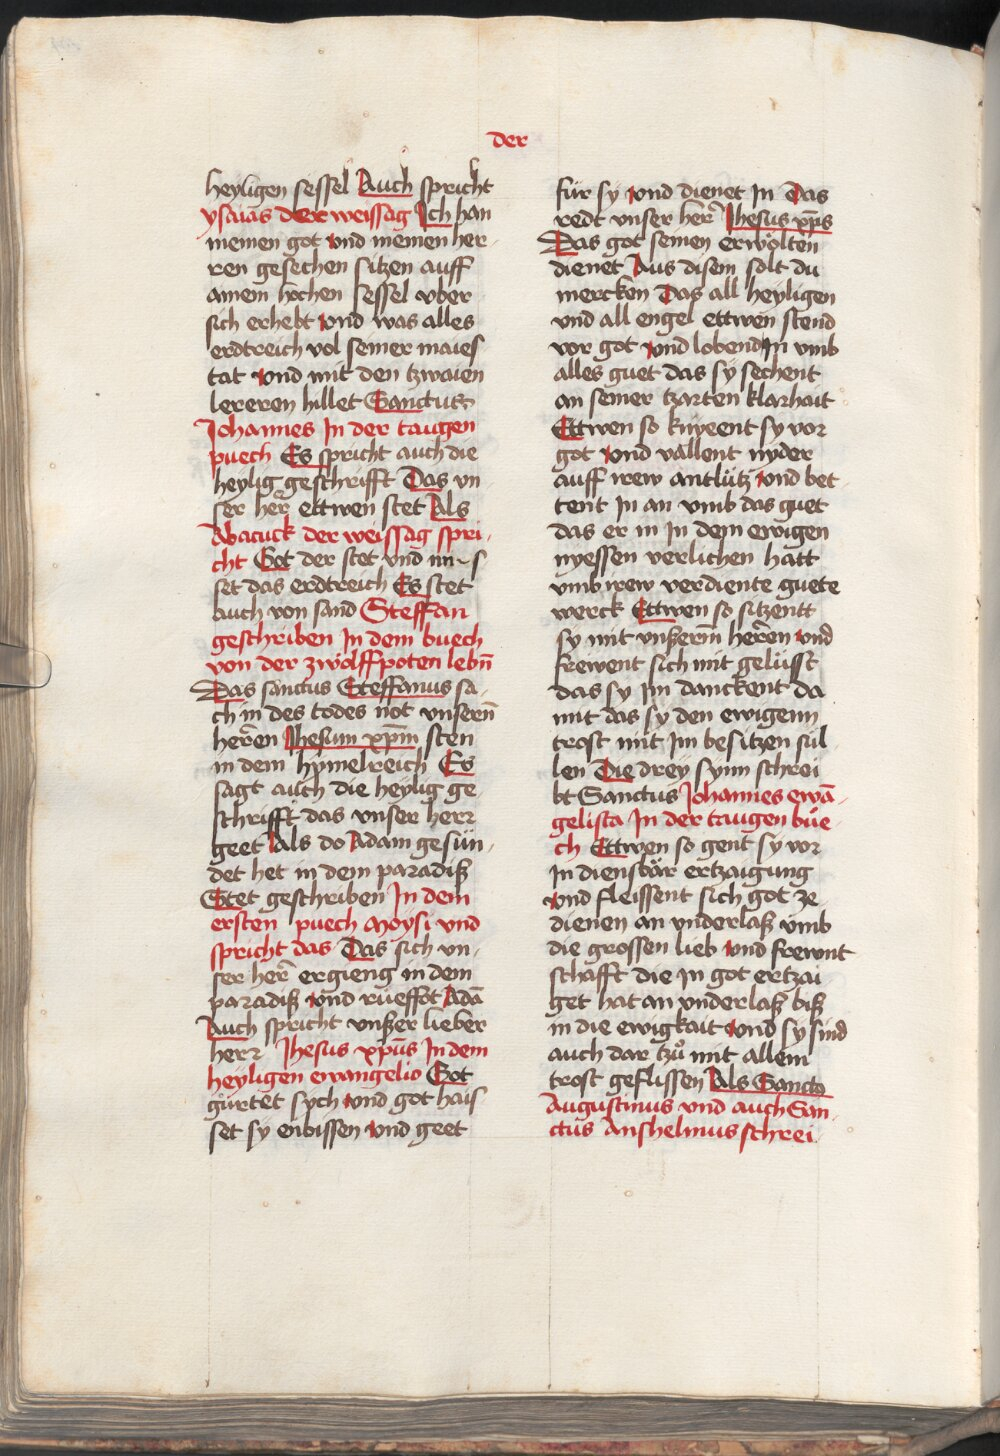 der
heyligen sessel Auch spricht
ysaias der weissag Ich han
meinen got vnd meinen her-
ren gesechen sitzen auff
ainem hochen sessel vber
sich erhebt vnd was alles
erdtreich vol seiner maies
tat vnd mit den tzwaien
lereren hillet Sanctus
Johannes In der taugen
puech Es spricht auch die
heylig geschrifft Das vn
ser her̄ ettwen stet Als
Abacuck der weissag spri-
cht Got der stet vnd
set das erdtreich Es stet
auch von sand Steffan
geschriben In dem buech
von der zwölffpoten lebn̄
Das sanctus Steffanus sa-
ch in des todes not vnsern̄
heren Jhesum xp̄m sten
in dem hymelreich Es
sagt auch die heylig ge-
schrifft das vnser herr
geet Als do Adam gesün-
det het in dem paradiß
Stet geschriben In dem
ersten puech Moysi vnd
spricht das Das sich vn-
ser her̄ ergieng in dem
paradiß vnd rueffot Adā
Auch spricht vnßer lieber
herr Jhesus xp̄us In dem
heyligen ewangelio Got
gürtet sych vnd got hais
set sy enbissen vnd geet
für sy vnd dienet In Das
redt vnser her̄ Jhesus xp̄s
Das got seinen erwölten
dienet Aus disem solt du
mercken Das all heyligen
vnd all engel ettwen stend
vor got vnd lobend In vmb
alles guet das sy sechent
an seiner tzarten klarhait
Ettwen so knyeent sy vor
got vnd vallent nyder
auff irew antlütz vnd bet
tent In an vmb das guet
das er in In dem ewigen
nyessen verlichen hatt
vmb irew verdiente guete
werck Ettwen so sitzentt
sy mit vnßerm̄ heren vnd
frewent sich mit gelüsst
das sy Im danckent da
mit das sy den ewigenn
trost mit Im besitzen sül
len Die drey synn schrei
bt Sanctus Johannes ewā-
gelista In der taugen büe-
ch Ettwen so gent sy vor
In diensbär ertzaigung
vnd fleissent sich got ze
dienen an vnderlaß vmb
die grossen lieb vnd frewnt
schafft die In got ertzai
get hat an vnderlaß biß
in die ewigkait vnd sy sind
auch dar tzů mit allem
trost geflissen Als Sancto
Augustinus vnd auch San-
ctus Anshelmus schrei-